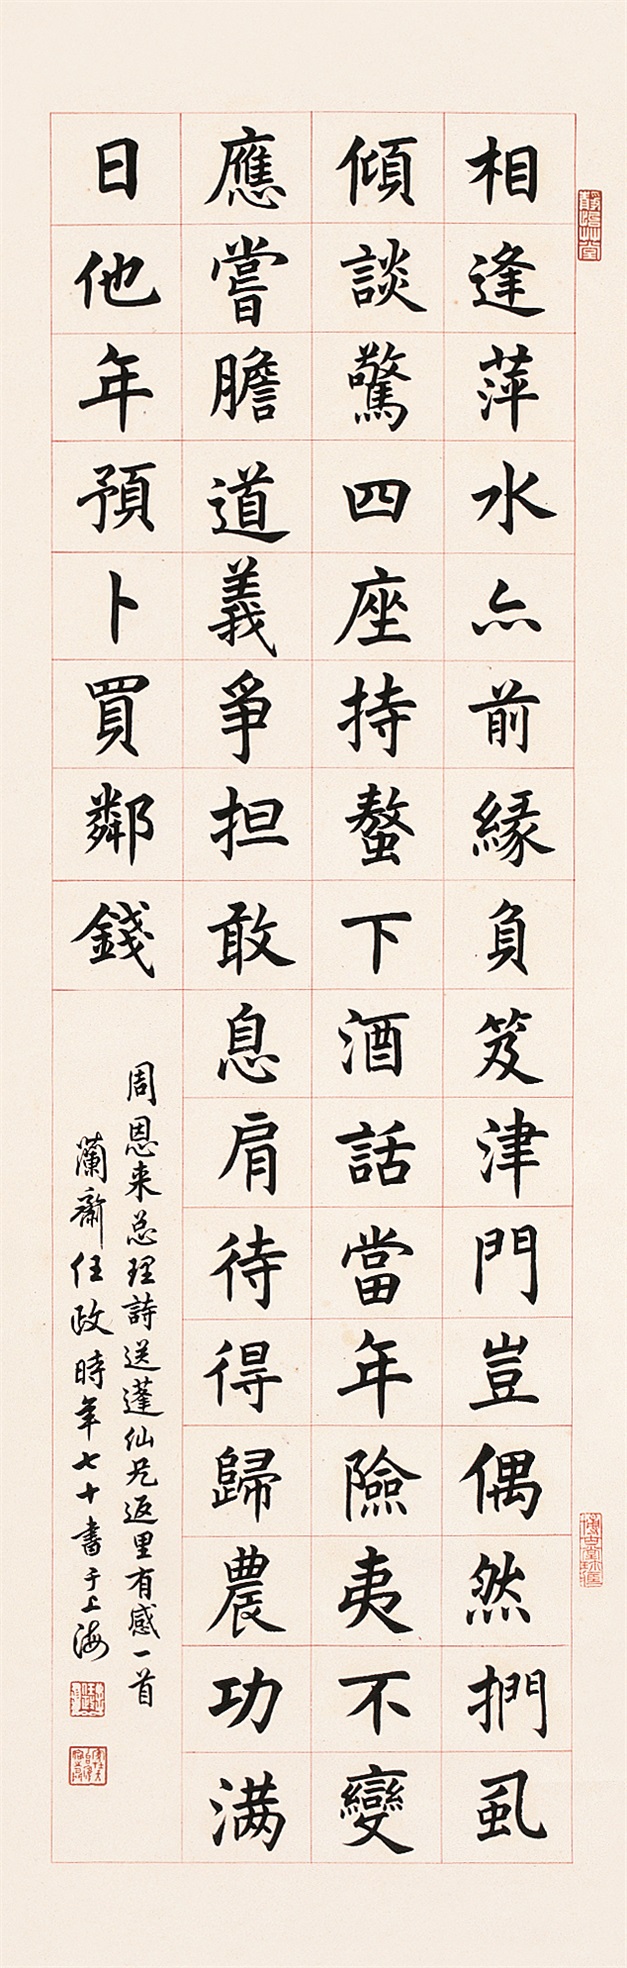 相逢萍水亦前緣負笈津門豈偶然捫虱
傾談驚四座持螯下酒話當年險夷不變
應嘗膽道義爭担敢息肩待得歸農功满
日他年預卜買鄰錢
周恩来总理詩送蓬仙兄返里有感一首
蘭齋任政時年七十書于上海